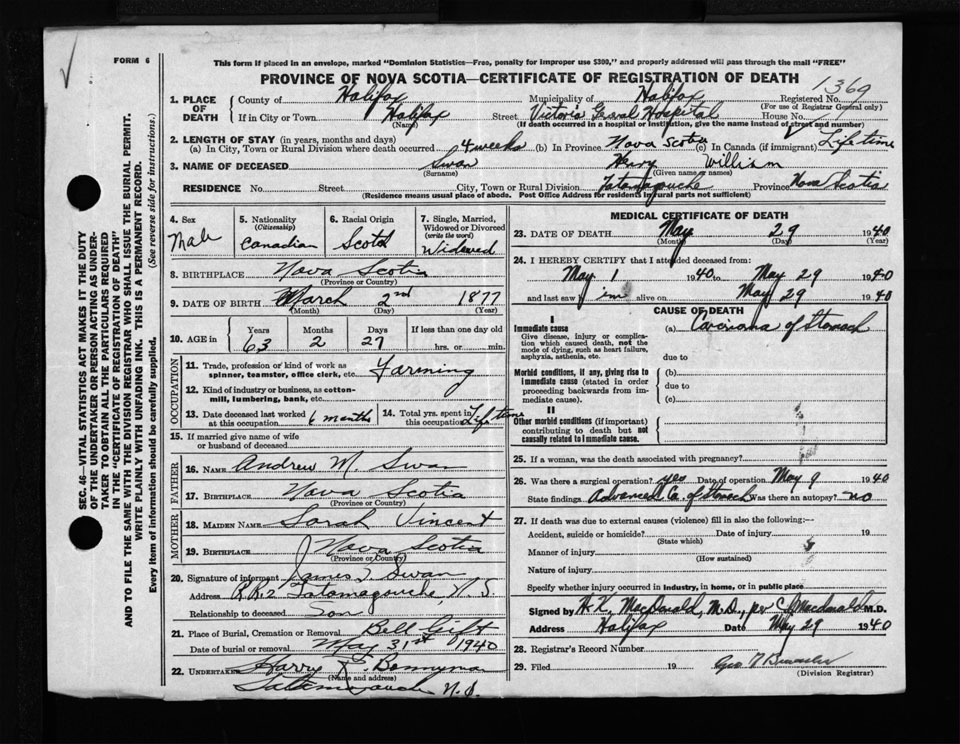 FORM 6
This form if placed in an envelope, marked "Dominion Statistics—Free, penalty for improper use $300," and properly addressed will pass through the mail "FREE"
PROVINCE OF NOVA SCOTIA—CERTIFICATE OF REGISTRATION OF DEATH
1369
1. PLACE OF DEATH County of Halifax Municipality of Halifax Registered No.
(For use of Registrar General only)
If in City or Town Halifax Street Victoria General Hospital House No.
(Name) (If death occurred in a hospital or institution, give the name instead of street and number)
2. LENGTH OF STAY (in years, months and days)
(a) In City, Town or Rural Division where death occurred 4 weeks (b) In Province Nova Scotia (c) In Canada (if immigrant) Lifetime
3. NAME OF DECEASED Swan Henry William
(Surname) (Given name or names)
RESIDENCE No. Street City, Town or Rural Division Tatamagouche Province Nova Scotia
(Residence means usual place of abode. Post Office Address for residents in rural parts not sufficient)
4. Sex Male
5. Nationality (Citizenship) Canadian
6. Racial Origin Scotch
7. Single, Married, Widowed or Divorced (write the word) Widowed
8. BIRTHPLACE Nova Scotia
(Province or Country)
9. DATE OF BIRTH March 2nd 1877
(Month) (Day) (Year)
10. AGE in Years 63 Months 2 Days 27 If less than one day old hrs. or min.
OCCUPATION
11. Trade, profession or kind of work as spinner, teamster, office clerk, etc. Farming
12. Kind of industry or business, as cotton-mill, lumbering, bank, etc.
13. Date deceased last worked at this occupation 6 months
14. Total yrs. spent in this occupation Lifetime
15. If married give name of wife or husband of deceased
FATHER
16. NAME Andrew M. Swan
17. BIRTHPLACE Nova Scotia
(Province or Country)
MOTHER
18. MAIDEN NAME Sarah Vincent
19. BIRTHPLACE Nova Scotia
(Province or Country)
20. Signature of informant James S. Swan
Address R.R.2 Tatamagouche, N.S.
Relationship to deceased Son
21. Place of Burial, Cremation or Removal Bell
Date of burial or removal May 31st 1940
22. UNDERTAKER Harry Bonnyman
(Name and address)
Tatamagouche N.S.
MEDICAL CERTIFICATE OF DEATH
23. DATE OF DEATH May 29 1940
(Month) (Day) (Year)
24. I HEREBY CERTIFY that I attended deceased from:
May 1 1940 to May 29 1940
and last saw him alive on May 29 1940
CAUSE OF DEATH
I
Immediate cause
Give disease, injury or complication which caused death, not the mode of dying, such as heart failure, asphyxia, asthenia, etc.
(a) Carcinoma of Stomach
due to
Morbid conditions, if any, giving rise to immediate cause (stated in order proceeding backwards from immediate cause).
(b)
due to
(c)
II
Other morbid conditions (if important) contributing to death but not causally related to immediate cause.
25. If a woman, was the death associated with pregnancy?
26. Was there a surgical operation? yes Date of operation May 9 1940
State findings Advanced Ca. of Stomach Was there an autopsy? no
27. If death was due to external causes (violence) fill in also the following:—
Accident, suicide or homicide? Date of injury 19
(State which)
Manner of injury
(How sustained)
Nature of injury
Specify whether injury occurred in industry, in home, or in public place
Signed by H.K. MacDonald, M.D., per C Macdonald M.D.
Address Halifax Date May 29 1940
28. Registrar's Record Number
29. Filed 19
(Division Registrar)
SEC. 46—VITAL STATISTICS ACT MAKES IT THE DUTY
OF THE UNDERTAKER OR PERSON ACTING AS UNDER-
TAKER TO OBTAIN ALL THE PARTICULARS REQUIRED
IN THE "CERTIFICATE OF REGISTRATION OF DEATH"
AND TO FILE THE SAME WITH THE DIVISION REGISTRAR WHO SHALL ISSUE THE BURIAL PERMIT.
WRITE PLAINLY WITH UNFADING INK. THIS IS A PERMANENT RECORD.
Every item of information should be carefully supplied. (See reverse side for instructions.)